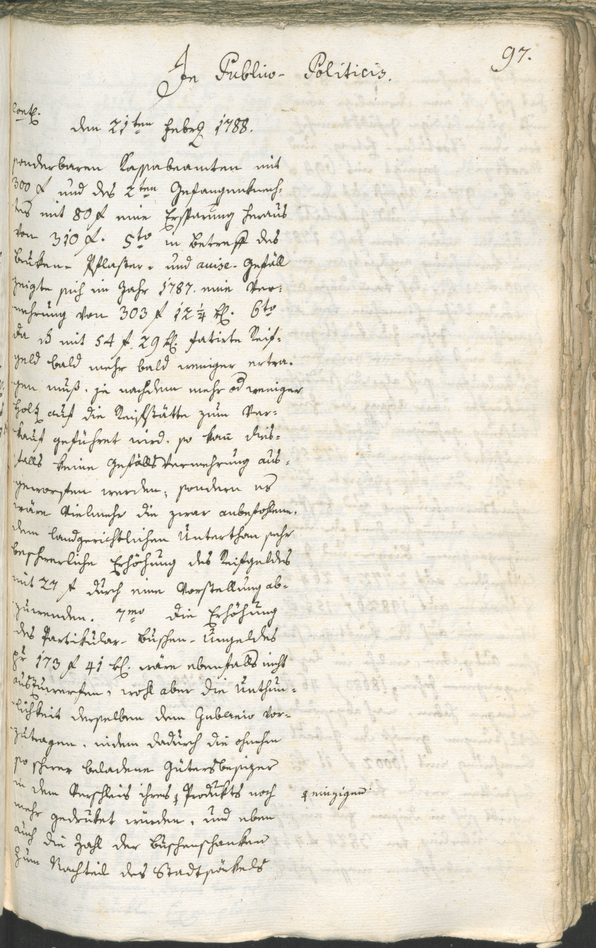 97.
In Publico-Politicis.
Cont.
den 21ten Febr. 1788.
sonderbaren Cassabeamten mit
300 f und des 2ten Gefangenknech-
tes mit 80 f eine Ersparung heraus
von 310 f. 5to in Betreff des
Brüken- Pflaster- und Gefäll
zeigte sich im Jahr 1787 eine Ver-
mehrung von 303 f 12¼ kr. 6to
da mit 54 f 29 kr. fatirte Reif-
geld bald mehr bald weniger ertra-
gen muß, je nachdem mehr od weniger
Holz auf die Reifstätte zum Ver-
kauf geführet wird. so kan dies-
falls keine Gefälls Vermehrung aus-
geworfen werden, sondern es
wäre vielmehr die zwar anbefohlene,
dem landgerichtlichen Unterthan sehr
beschwerliche Erhöhung des Reifgeldes
mit 27 f durch eine Vorstellung ab-
zuwenden. 7mo die Erhöhung
des Partikular- Buschen- Umgeldes
pr 173 f 41 kr. wäre ebenfalls nicht
auszuwerfen, wohl aber die Unthun-
lichkeit derselben dem Gubernio vor-
zutragen, indem dadurch die ohnehin
so schwer beladene Güterbesizer
in dem Verschleis ihres Produkts noch
einzigen
mehr gedrüket würden, und eben
auch die Zahl der Buschenschanken
zum Nachteil des Stadtsäkels